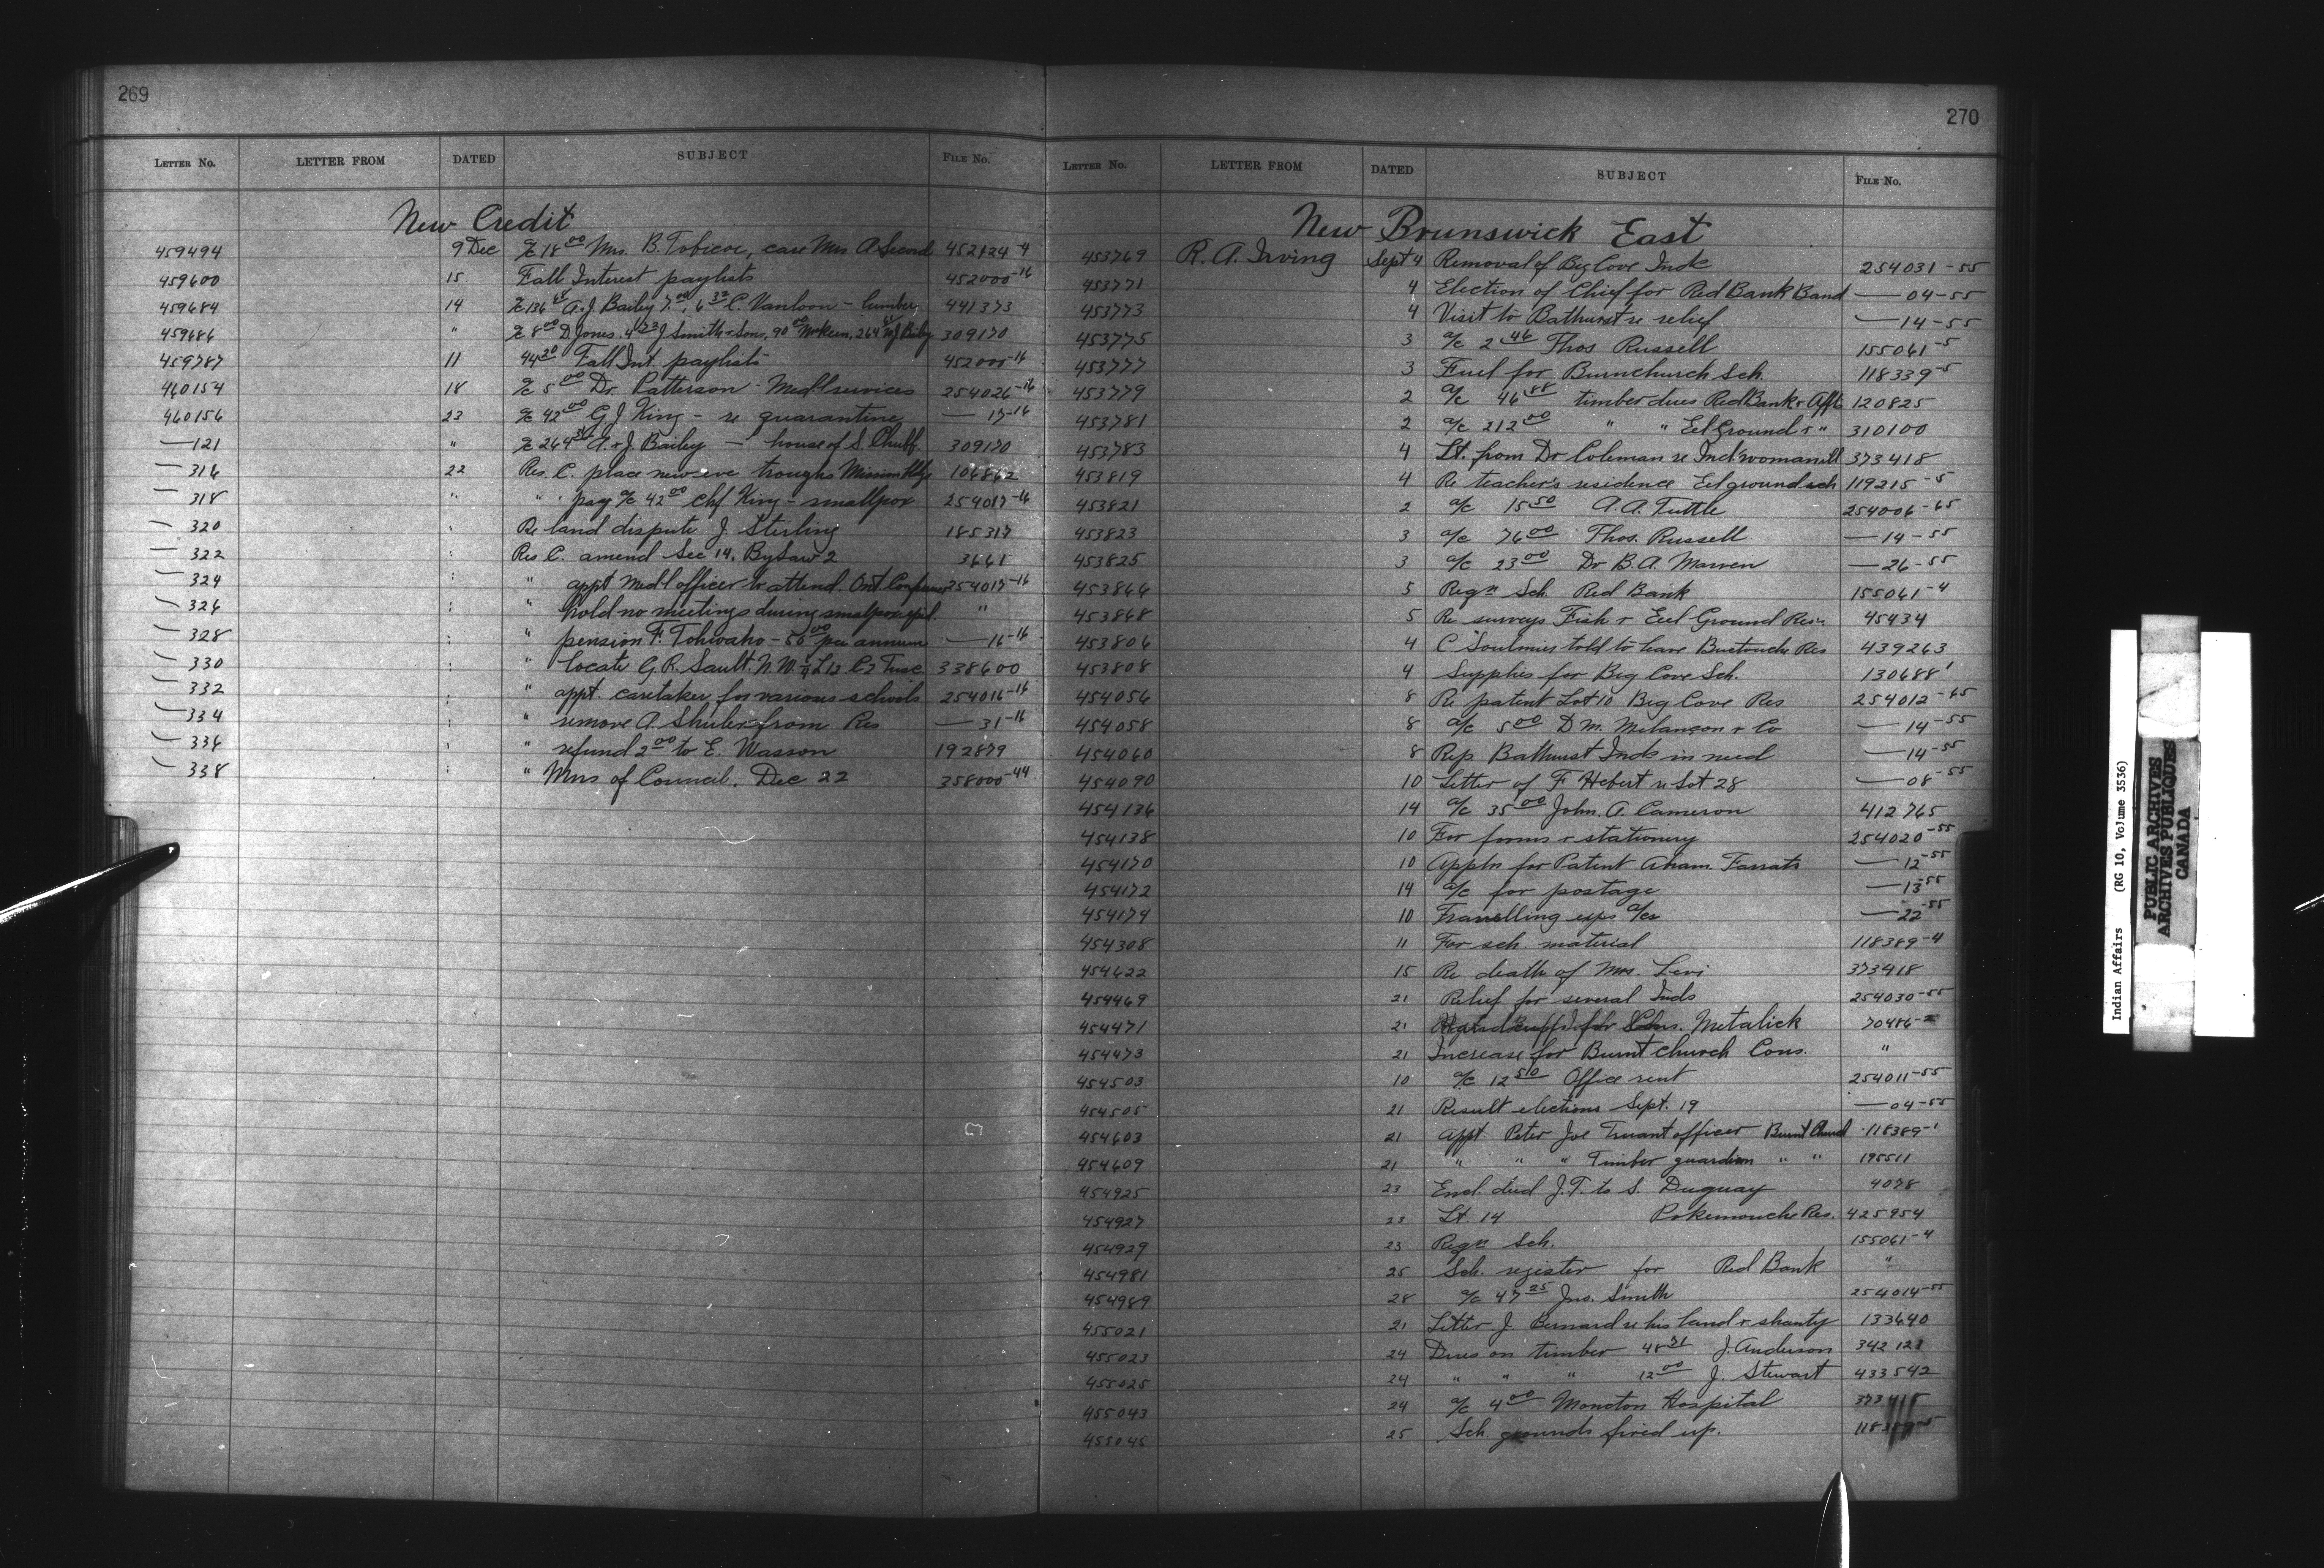 269
LETTER NO. LETTER FROM DATED SUBJECT FILE NO.
New Credit
459494 9 Dec 18 00 Mrs. B. Tobicoe, care Mrs A Secord 452124-4
459600 15 Fall Interest paylists 452000-16
459684 14 A. J. Bailey C. Vanloon - lumber 441373
459686 " 8 00 D. Jones. J Smith & Sons, 309170
459787 11 44 20 Fall Int. paylists 452000-16
460154 18 a/c 5 00 Dr. Patterson - Medl services 254026-16
460156 23 a/c 42 00 G. J. King - re quarantine — 17-16
— 121 " A. & J. Bailey — house of S. Chubb 309170
— 316 22 Res. C. place new eve troughs Mission 106862
— 318 " " pay a/c 42 00 Chf King - smallpox 254017-16
— 320 : Re land dispute J. Sterling 185317
— 322 : Res C. amend Sec 14. By Law 2 3661
— 324 : " appt Medl officer to attend. Ont. 254017-16
— 326 : " hold no meetings during smallpox "
— 328 : " pension F. Tohwaho - 50 00 per annum — 16-16
— 330 : " locate G. R. Sault. N.W. Tusc. 338600
— 332 : " appt. caretaker for various schools 254016-16
— 334 : " remove A. Shuler from Res — 31-16
— 336 : " refund 2 00 to E. Wasson 192879
— 338 : " Mns of Council. Dec 22 358000-44
270
LETTER NO. LETTER FROM DATED SUBJECT FILE NO.
New Brunswick East
453769 R. A. Irving Sept 4 Removal of Big Cove Inds 254031-55
453771 4 Election of Chief for Red Bank Band — 04-55
453773 4 Visit to Bathurst re relief — 14-55
453775 3 a/c 2 46 Thos Russell 155061-5
453777 3 Fuel for Burnchurch Sch. 118339-5
453779 2 a/c 46 88 timber dues Red Bank & Afft 120825
453781 2 a/c 212 00 " " Eel Ground & " 310100
453783 4 Lt. from Dr Coleman re Ind woman ill 373418
453819 4 Re teacher's residence Eel ground sch 119215-5
453821 2 a/c 15 50 A. A. Tuttle 254006-65
453823 3 a/c 76 00 Thos. Russell — 14-55
453825 3 a/c 23 00 Dr B. A. Marven — 26-55
453866 5 Regn Sch. Red Bank 155061-4
453868 5 Re surveys Fish & Eel Ground Resv. 45434
453806 4 C Soulmies told to leave Buctouche Res 439263
453808 4 Supplies for Big Cove Sch. 130688 1
454056 8 Re patent Lot 10 Big Cove Res 254012-65
454058 8 a/c 5 00 D M. Melançon & Co — 14-55
454060 8 Rep. Bathurst Inds in need — 14-55
454090 10 Letter of F Hebert re Lot 28 — 08-55
454136 14 a/c 35 00 John. A. Cameron 412765
454138 10 For forms & stationery 254020-55
454170 10 Appln for Patent — 12-55
454172 14 a/c for postage — 13-55
454174 10 Travelling exps a/cs — 22-55
454308 11 For sch. material 118389-4
454622 15 Re death of Mrs. Levi 373418
454469 21 Relief for several Inds 254030-55
454471 21 for Metalick 70486-2
454473 21 Increase for Burnt church Cons. "
454503 10 a/c 12 50 Office rent 254011-55
454505 21 Result elections Sept. 19 — 04-55
454603 21 Appt. Peter Joe Truant officer Burnt Church 118389-1
454609 21 " " " Timber guardian " " 195511
454925 23 Encl. deed J. T. to S. Duguay 4078
454927 23 Lt. 14 Pokemouche Res. 425954
454929 23 Regn Sch. 155061-4
454981 25 Sch. register for Red Bank "
454989 28 a/c 47 25 Jno. Smith 254014-55
455021 21 Letter J. Bernard re his land & shanty 133640
455023 24 Dues on timber J. Anderson 342123
455025 24 " " " 12 00 J. Stewart 433542
455043 24 a/c 4 00 Moncton Hospital
455045 25 Sch. grounds fixed up.
Indian Affairs (RG 10, Volume 3536)
PUBLIC ARCHIVES
ARCHIVES PUBLIQUES
CANADA